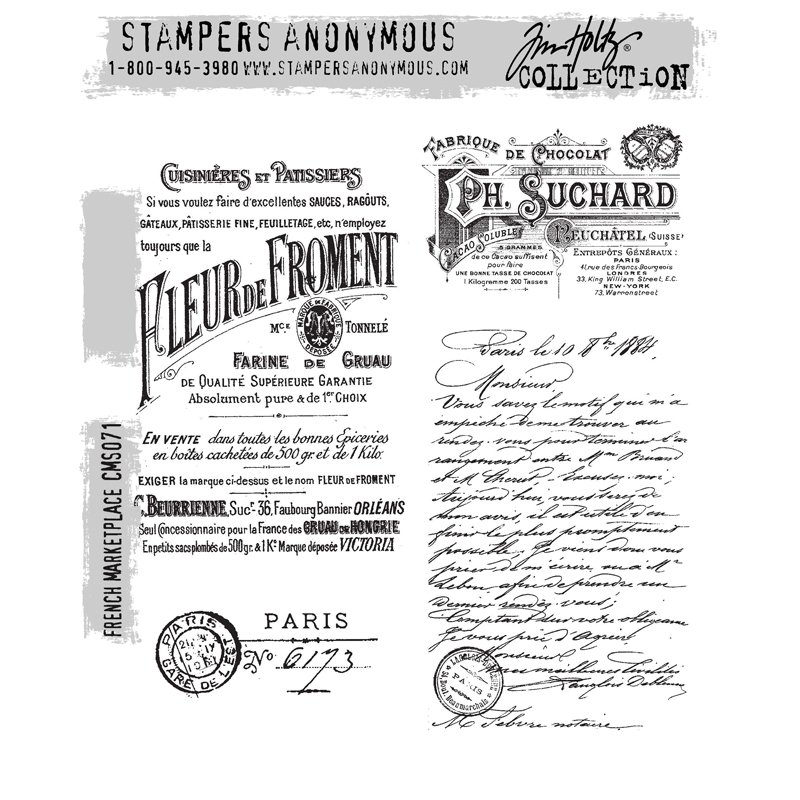 STAMPERS ANONYMOUS
1-800-945-3980 WWW.STAMPERSANONYMOUS.COM
Tim Holtz®
COLLECTION
FRENCH MARKETPLACE CMS071
CUISINIÈRES ET PATISSIERS
Si vous voulez faire d'excellentes SAUCES, RAGOÛTS,
GÂTEAUX, PÂTISSERIE FINE, FEUILLETAGE, etc, n'employez
toujours que la
FLEUR DE FROMENT
MARQUE DE FABRIQUE
DÉPOSÉE
Mce TONNELÉ
FARINE DE GRUAU
DE QUALITÉ SUPÉRIEURE GARANTIE
Absolument pure & de 1er CHOIX
EN VENTE dans toutes les bonnes Epiceries
en boîtes cachetées de 500 gr. et de 1 Kilo.
EXIGER la marque ci-dessus et le nom FLEUR DE FROMENT
C. BEURRIENNE, Sucr 36, Faubourg Bannier ORLÉANS
Seul Concessionnaire pour la France des GRUAU DE HONGRIE
En petits sacs plombés de 500gr. & 1 Ko Marque déposée VICTORIA
PARIS
GARE DE L'EST
PARIS
No 6173
FABRIQUE DE CHOCOLAT
PH. SUCHARD
NEUCHÂTEL (SUISSE)
CACAO SOLUBLE
5 GRAMMES
de ce Cacao suffisent
pour faire
UNE BONNE TASSE DE CHOCOLAT
1 Kilogramme 200 Tasses
ENTREPÔTS GÉNÉRAUX:
PARIS
41, rue des Francs-Bourgeois
LONDRES
33, King William Street, E.C.
NEW-YORK
73, Warrenstreet
Paris le 10 8bre 1884.
Monsieur
Vous savez le motif qui m'a
empêché de me trouver au
rendez-vous pour terminer l'ar
rangement entre Mme Bruand
et M. Excusez-moi;
aujourd'hui, vous serez de
mon avis, il est utile d'en
finir le plus promptement
possible. Je viens donc vous
prier de m'écrire, ou à Me
Lebon, afin de prendre un
dernier rendez-vous;
Comptant sur votre obligeance
Je vous prie d'agréer
Monsieur
mes meilleures
Langlois
PARIS
Beaumarchais
M. Lebvre notaire.